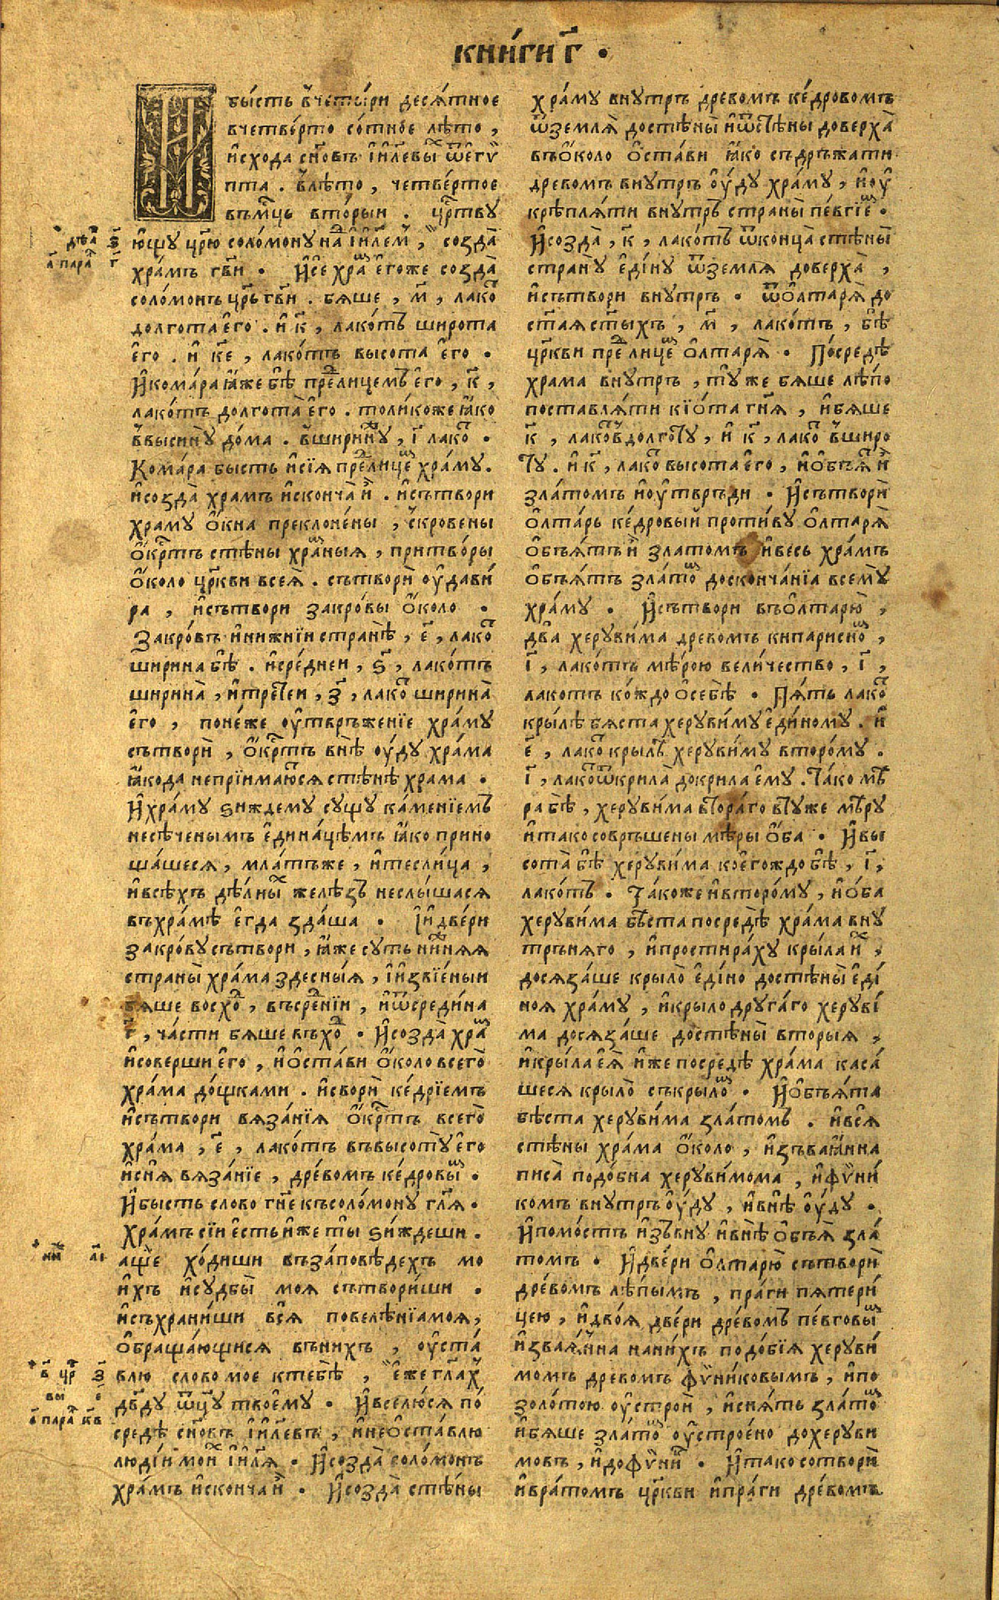 КНИ́ГИ Г҃ •
И бы́сть в҆четы́ри десѧ́тное
вчетве́рто со́тное лѣ́то ,
и҆схода сн҃овъ і҆и҃левы́х ѿе҆гѵ́
пта . в҆лѣ́то , четве́ртое
въмц҃ъ вто́рыи . цр҃тву
ю́щу цр҃ю соло́мону на́д і҆и҃лем , созда̀
хра́мъ гв҃и • И҆се́ храм е҆го́же созда̀
соло́монъ цр҃ь гв҃и . бѧ́ше , м҃ , лако́т
долгота̀ е҆го̀ . и҆ к҃ , лако́тъ широта̀
е҆го̀ . и҆ к҃е , лако́тъ высота̀ е҆го̀ •
И҆кома́ра ꙗ҆́же бѣ̀ пре́длицемъ е҆го̀ , к҃ ,
лако́тъ долгота̀ е҆го̀ . толикоже ꙗ҆́ко
в҆высинꙋ̀ до́ма . в҆ширинꙋ̀ , і҃ лако́т •
Кома́ра бысть и҆сїѧ̀ пре́длицем хра́му .
и҆созда̀ храмъ и҆сконча̀ и҆̀ . и҆сътвори
храму ѻ҆́кна преклоне́ны , скрове́ны
ѻ҆́кртъ стѣ́ны хра́мныѧ , притво́ры
ѻ҆́коло цр҃кви всеѧ̀ . сътворѝ ѹ҆дави́
ра , и҆сътвори закро́вы ѻ҆́коло •
Закро́въ и҆нижнїи странѣ̀ , е҃ , лако́т
ширина̀ бѣ̀ . и҆сре́днеи , ѕ҃ , лако́тъ
ширина̀ , и҆тре́тїеи , з҃ , лако́т ширина̀
е҆го̀ , поне́же ѹ҆твръже́нїе хра́му
сътворѝ , ѻ҆́кртъ внѣ̀ ѹ҆́ду храма
ꙗ҆́кода непрїима́ютсѧ стѣнѣ̀ храма •
И҆хра́му ѕи́ждему су́щу ка́менїемъ
несѣ́ченымъ е҆дина́цѣмъ ꙗ҆́ко прино
ша́шесѧ , мла́тъже , и҆тесли́ца ,
и҆всѣ́хъ дѣ́лных желѣ́зъ неслы́шасѧ
въхра́мѣ е҆гда̀ зда́ша • І҆ и҆две́ри
закро́ву сътвори , ꙗ҆́же суть ни́жнѧѧ
страны̀ храма здесны́ѧ , і҆ и҆звїе́ныи
бѧ́ше восхо́д , въсре́днїи , и҆ѿсреди́на
г҃ , ча́сти бѧ́ше въхо́д • И҆созда̀ храм
и҆совершѝ е҆го̀ , и҆ѻ҆ста́ви ѻ҆́коло всего̀
храма до́щками . и҆сво́ри ке́дрїемъ
и҆сътвори вѧза́нїѧ ѻ҆́кртъ всего̀
храма , е҃ , лако́тъ въвысоту̀ е҆го̀
и҆снѧ̀ вѧза́нїе , дре́вомъ ке́дровым •
И҆бы́сть слово гн҃е къ соло́мону гл҃ѧ •
Хра́мъ сїи е҆́сть и҆́же ты̀ ѕи́ждеши .
а҆́ще хо́диши въза́повѣдехъ мо
и҆́хъ и҆судбы̀ моѧ̀ сътвори́ши .
и҆съхрани́ши всѧ̀ повелѣ́нїа моѧ̀ ,
ѻ҆браща́ющисѧ вънихъ , ѹ҆ста́
влю слово моѐ ктебѣ̀ , е҆́же гл҃ах
дв҃ду ѿц҃у твоему̀ • И҆вселю́сѧ по
средѣ̀ сн҃овъ і҆и҃левъ , и҆неѡ҆ста́влю
люді́и мои́х і҆и҃лѧ • И҆созда̀ соло́монъ
храмъ и҆сконча̀ и҆̀ • И҆созда̀ стѣ́ны
дѣа҃ з҃
а҃ пара҃л г҃
ни҃ж а҃і
в҃ цр҃ з҃
вы е҃
а҃ пара҃л кв҃
хра́му внутръ дре́вомъ ке́дровомъ
ѿземлѧ̀ достѣны̀ и҆ѿстѣ́ны доверха̀
въѻ҆́коло ѻ҆ста́ви ꙗ҆́ко съдръжа́ти
дре́вомъ внутръ ѹ҆́ду хра́му , и҆ѹ҆
крѣплѧ́ти внутръ страны̀ пе́вгїем •
И҆созда̀ , к҃ , лако́тъ ѿконца̀ стѣны̀
страну̀ е҆ди́ну ѿземлѧ̀ доверха̀ ,
и҆сътвори внутръ • ѿѻ҆лтарѧ̀ до
ст҃аѧ ст҃ыхъ , м҃ , лако́тъ , бѣ̀
цр҃кви пре́длицем ѻ҆лтарѧ̀ • По́средѣ
храма внутръ , ту́же бѧ́ше лѣ́по
поставлѧ́ти кїѡ́та гн҃ѧ , и҆бѧ́ше
к҃ , лако́тъ в҆долготу̀ , и҆ к҃ , лако́т в҆широ
ту̀ . и҆ к҃ , лако́т высота̀ е҆го̀ , и҆ѻ҆бъѧ̀т и҆̀
зла́томъ и҆ѹ҆твръди • И҆сътворѝ
ѻ҆лта́рь ке́дровый проти́ву ѻ҆лтарѧ̀
ѻ҆бъѧ́тъ и҆̀ златомъ и҆весь хра́мъ
ѻ҆бъѧ́тъ зла́том доскончанїа всему̀
храму • И҆сътвори въѻ҆лтарю̀ ,
два̀ херуви́ма древомъ кипарисном ,
і҃ , лако́тъ мѣ́рою вели́чество , і҃ ,
лакотъ ко́ждо ѻ҆себѣ̀ • Пѧ́ть лако́т
крылѣ̀ бѧ́ста херуви́му е҆ди́ному . и҆
е҃ , лако́т крылѣ̀ херуви́му второ́му .
і҃ , лако́т ѿкрила̀ докрила̀ е҆му̀ . Та́ко мѣ
ра бѣ̀ , херувима вто́раго в҆ту́же мѣ́ру
и҆тако совръшены мѣ́ры ѻ҆́ба • И҆вы
сота̀ бѣ̀ херуви́ма кое́гождо бѣ̀ , і҃ ,
лако́тъ . Та́коже и҆второ́му , и҆ѻ҆́ба
херуви́ма бѣ́ста посредѣ̀ храма вну́
трънѧго , и҆простира́ху крыла̀ и҆́х ,
досѧза́ше крыло̀ е҆ди́но достѣны̀ е҆ди́
ноѧ храму , и҆крыло̀ друга́го херуви́
ма досѧза́ше достѣны̀ вторы́ѧ ,
и҆кры́ла е҆ѧ̀ и҆́же посредѣ̀ храма каса́
шесѧ крыло̀ съкрыло́м • И҆ѻ҆бъѧ́та
бѣ́ста херуви́ма зла́томъ . и҆всѧ̀
стѣ́ны храма ѻ҆́коло , и҆зъваѧ́нна
писа̀ подо́бна херуви́мома , и҆фѵ́ни́
комъ внутръ ѹ҆́ду , и҆внѣ̀ ѹ҆́ду •
И҆помо́стъ и҆зъвну̀ и҆внѣ̀ ѻ҆бъѧ̀ зла́
томъ • И҆две́ри ѻ҆лтарю̀ сътворѝ
дре́вомъ лѣ́пымъ , пра́ги пѧтери́
цею , и҆дво́ѧ две́ри дре́вомъ пе́вговым
и҆зваѧ̀нна наних подо́бїѧ херуви́
момъ древомъ фѵ́никовымъ , и҆по
золо́тою ѹ҆строѝ , и҆снѧ́тъ зла́том
и҆бѧ́ше зла́том ѹ҆строе́но дохеруви́
мовъ , и҆дофѵ́ник • И҆тако сотворѝ
и҆вратомъ цр҃кви и҆пра́ги дре́вомъ